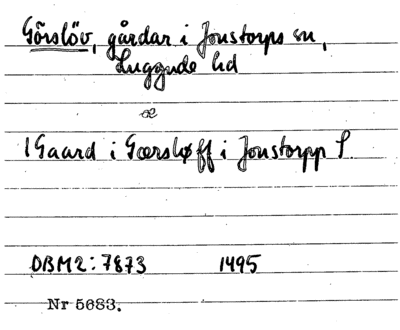 Görslöv, gårdar i Jonstorps sn,
Luggude hd
œ
1 Gaard i Gœrsløff i Jonstorpp S
DBM2:7873 1495
Nr 5683.